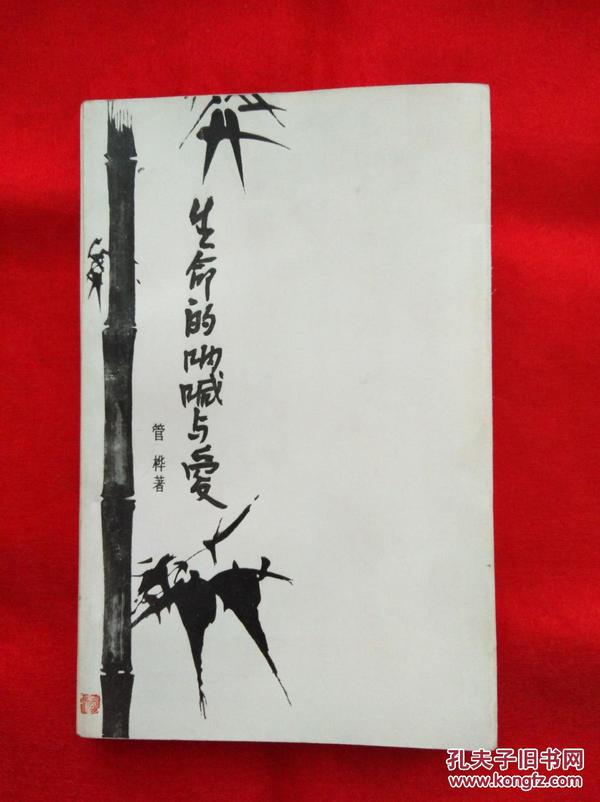 生命的呐喊与爱
管桦著
孔夫子旧书网
www.kongfz.com